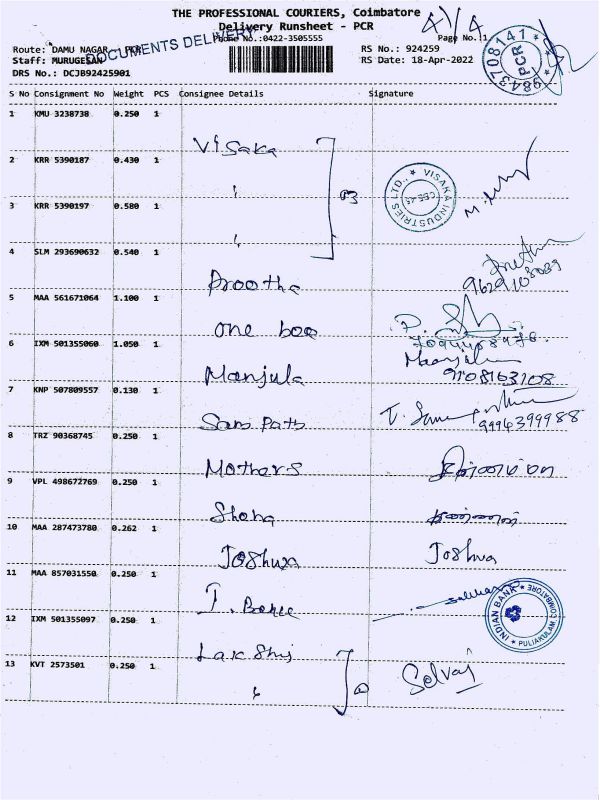 THE PROFESSIONAL COURIERS, Coimbatore
Delivery Runsheet - PCR
Phone No.:0422-3505555
Page No.:1
Route: DAMU NAGAR PCR
DOCUMENTS DELIVERY
RS No.: 924259
Staff: MURUGESAN
RS Date: 18-Apr-2022
DRS No.: DCJB92425901
9843708141
PCR
S No Consignment No Weight PCS Consignee Details Signature
1 KMU 3238738 0.250 1
Visaka
2 KRR 5390187 0.430 1
"
03
VISAKA INDUSTRIES LTD.,
3 KRR 5390197 0.580 1
"
4 SLM 293690632 0.540 1
Preetha
5 MAA 561671064 1.100 1
one boo
6 IXM 501355060 1.050 1
Manjula
9108163108
7 KNP 507809557 0.130 1
Sam Path
9994399988
8 TRZ 90368745 0.250 1
Mothers
9 VPL 498672769 0.250 1
Shoba
10 MAA 287473780 0.262 1
Joshua Joshua
11 MAA 857031550 0.250 1
INDIAN BANK
PULIAKULAM, COIMBATORE
12 IXM 501355097 0.250 1
Lakshmi
13 KVT 2573501 0.250 1
"
Selvaj